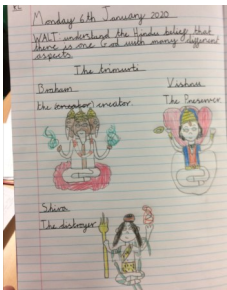 R.E
Monday 6th January 2020
WALT understand the Hindu belief that
there is one God with many different
aspects
The trimurti
Braham
the creator
Vishnu
The Preserver
Shiva
The distroyer